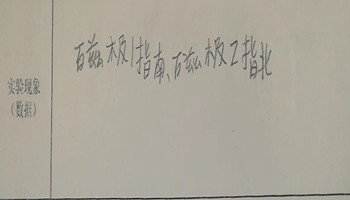 磁极1指南、磁极2指北
实验现象
(数据)